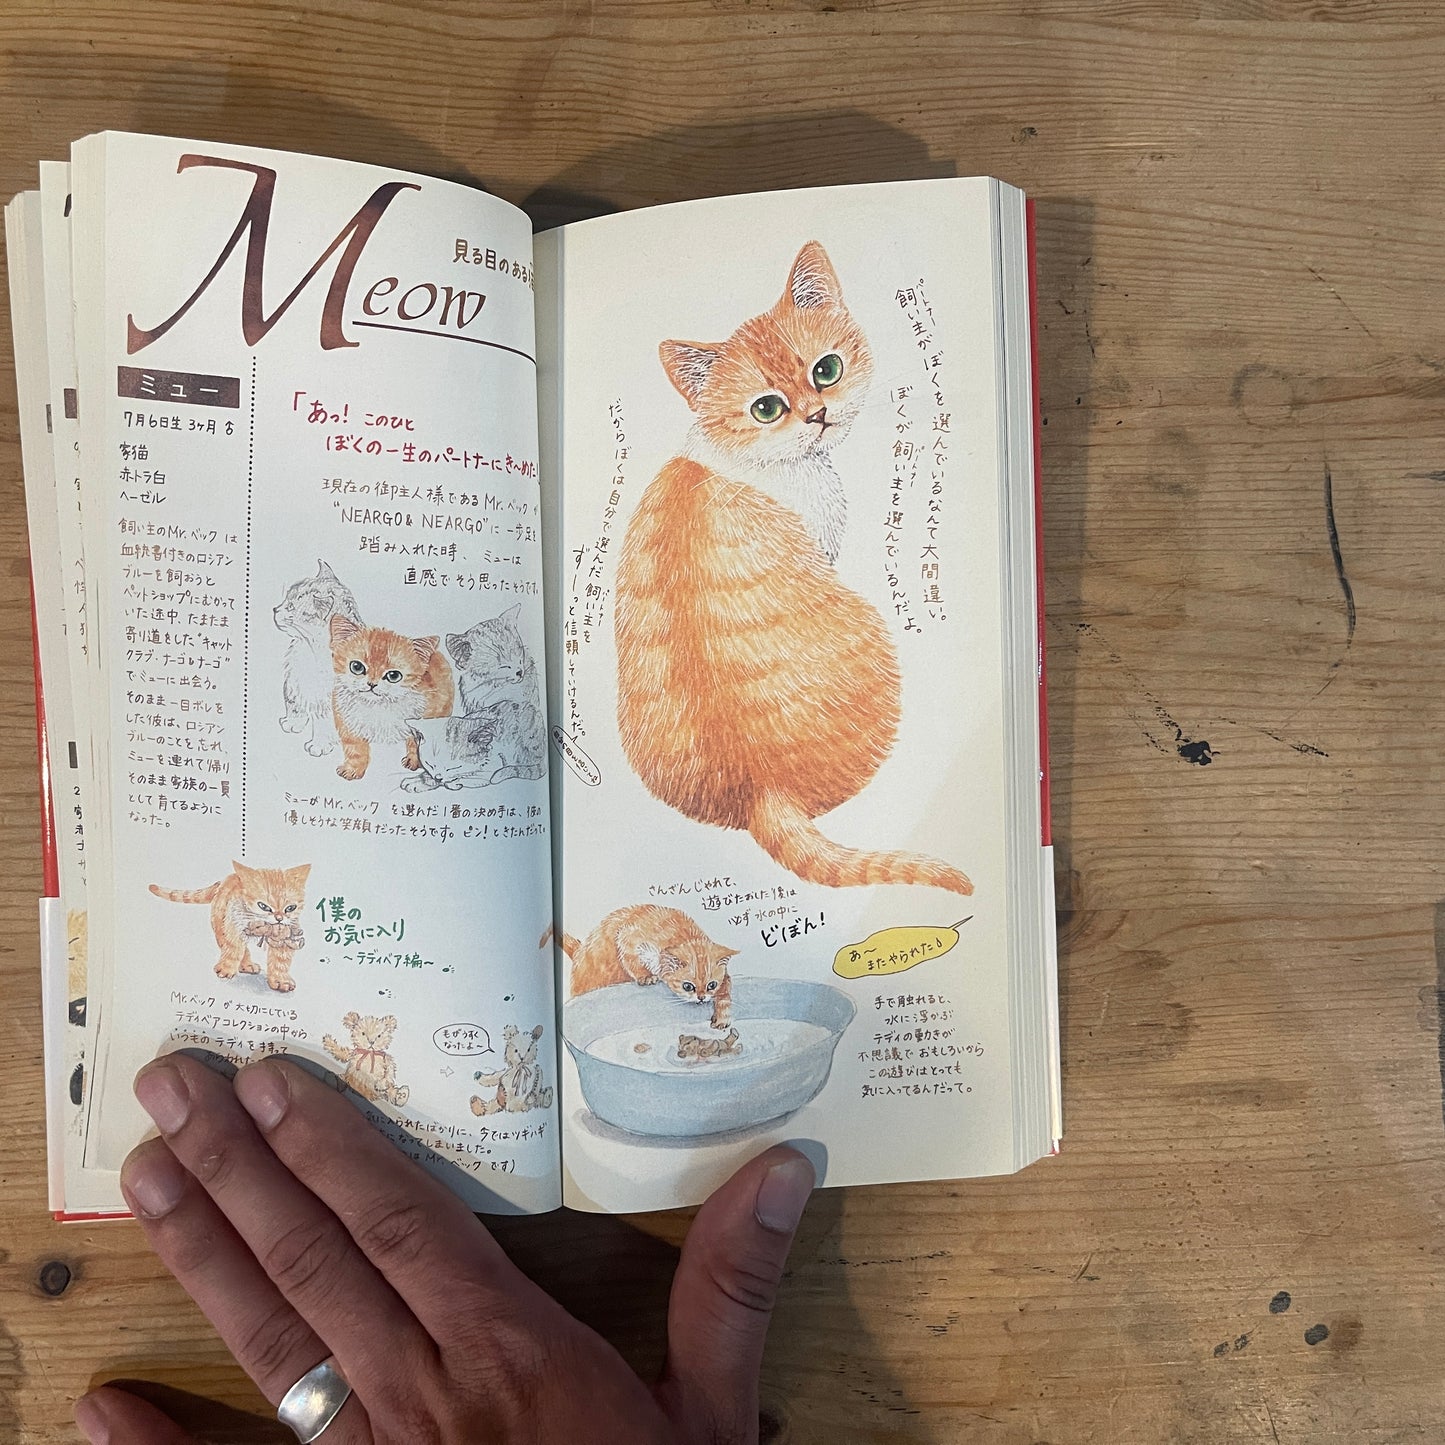 Meow
見る目のある
ミュー
7月6日生 3ヶ月 ♂
家猫
赤トラ白
ヘーゼル
飼い主のMr.ベック は
血統書付きのロシアン
ブルーを飼おうと
ペットショップにむかって
いた途中、たまたま
寄り道をした"キャット
クラブ・ナーゴ&ナーゴ"
でミューに出会う。
そのまま一目ボレを
した彼は、ロシアン
ブルーのことを忘れ、
ミューを連れて帰り
そのまま家族の一員
として育てるように
なった。
「あっ! このひと
ぼくの一生のパートナーにき〜めた!
現在の御主人様であるMr.ベック が
"NEARGO & NEARGO"に一歩足を
踏み入れた時、ミューは
直感でそう思ったそうです。
ミューがMr.ベック を選んだ1番の決め手は、彼の
優しそうな笑顔だったそうです。ピン!ときたんだって。
僕の
お気に入り
〜テディベア編〜
Mr.ベック が大切にしている
テディベアコレクションの中から
いつもの テディを持って
あらわれた
もびょうずく
なったよ〜
気に入られたばかりに、今ではツギハギ
になってしまいました。
は Mr.ベック です)
パートナー
飼い主がぼくを選んでいるなんて大間違い。
パートナー
ぼくが飼い主を選んでいるんだよ。
だからぼくは自分で選んだ飼い主を
パートナー
ずーっと信頼していけるんだ。
さんざんじゃれて、
遊びたおした後は
必ず水の中に
どぼん!
あ〜
またやられた
手で触れると、
水に浮かぶ
テディの動きが
不思議でおもしろいから
この遊びはとっても
気に入ってるんだって。